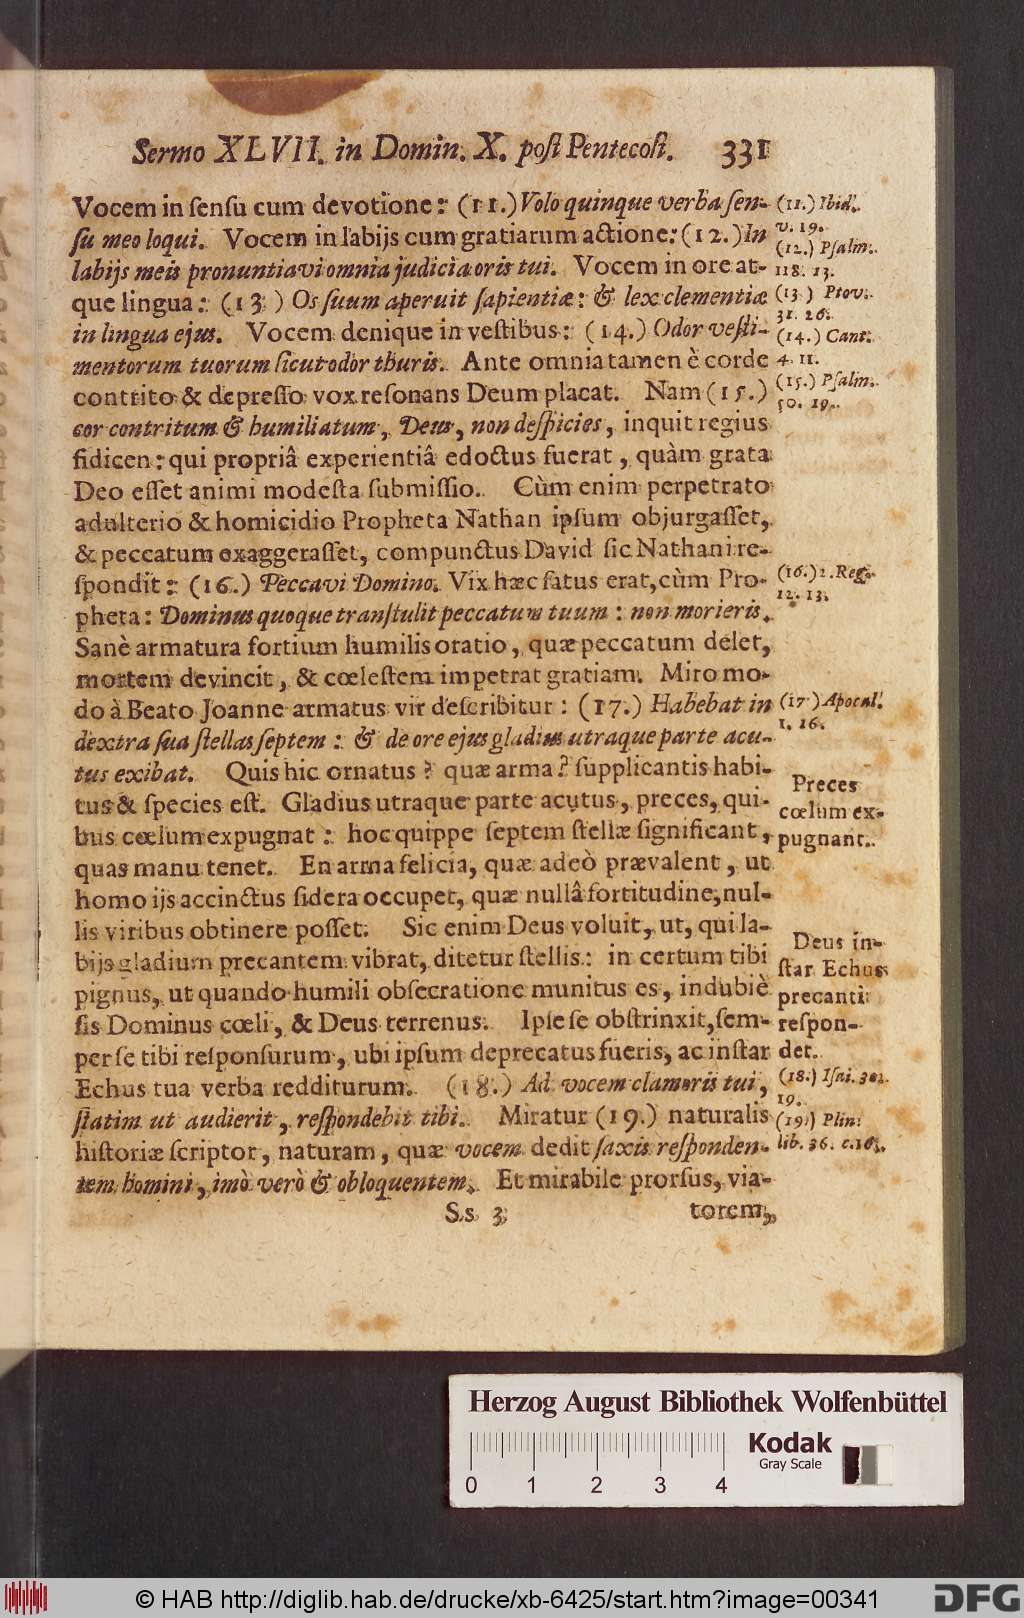 Sermo XLVII. in Domin. X. poſt Pentecoſt. 331
Vocem in ſenſu cum devotione: (11.) Volo quinque verba ſen-
ſu meo loqui. Vocem in labijs cum gratiarum actione: (12.) In
labijs meis pronuntiavi omnia judicia oris tui. Vocem in ore at-
que lingua: (13.) Os ſuum aperuit ſapientiæ: & lex clementiæ
in lingua ejus. Vocem denique in veſtibus: (14.) Odor veſti-
mentorum tuorum ſicut odor thuris. Ante omnia tamen è corde
contrito & depreſſo vox reſonans Deum placat. Nam (15.)
cor contritum & humiliatum, Deus, non deſpicies, inquit regius
fidicen: qui propriâ experientiâ edoctus fuerat, quàm grata
Deo eſſet animi modeſta ſubmiſſio. Cùm enim perpetrato
adulterio & homicidio Propheta Nathan ipſum objurgaſſet,
& peccatum exaggeraſſet, compunctus David ſic Nathani re-
ſpondit: (16.) Peccavi Domino. Vix hæc fatus erat, cùm Pro-
pheta: Dominus quoque tranſtulit peccatum tuum: non morieris.
Sanè armatura fortium humilis oratio, quæ peccatum delet,
mortem devincit, & cœleſtem impetrat gratiam. Miro mo-
do à Beato Joanne armatus vir deſcribitur: (17.) Habebat in
dextra ſua ſtellas ſeptem: & de ore ejus gladius utraque parte acu-
tus exibat. Quis hic ornatus? quæ arma? ſupplicantis habi-
tus & ſpecies eſt. Gladius utraque parte acutus, preces, qui-
bus cœlum expugnat: hoc quippe ſeptem ſtellæ ſignificant,
quas manu tenet. En arma felicia, quæ adeò prævalent, ut
homo ijs accinctus ſidera occupet, quæ nullâ fortitudine, nul-
lis viribus obtinere poſſet. Sic enim Deus voluit, ut, qui la-
bijs gladium precantem vibrat, ditetur ſtellis: in certum tibi
pignus, ut quando humili obſecratione munitus es, indubiè
ſis Dominus cœli, & Deus terrenus. Ipſe ſe obſtrinxit, ſem-
per ſe tibi reſponſurum, ubi ipſum deprecatus fueris, ac inſtar
Echus tua verba redditurum. (18.) Ad vocem clamoris tui,
ſtatim ut audierit, reſpondebit tibi. Miratur (19.) naturalis
hiſtoriæ ſcriptor, naturam, quæ vocem dedit ſaxis reſponden-
tem homini, imò verò & obloquentem. Et mirabile prorſus, via-
Ss 3 torem,
(11.) Ibid.
v. 19.
(12.) Pſalm.
118. 13.
(13.) Prov.
31. 26.
(14.) Cant.
4. 11.
(15.) Pſalm.
50. 19.
(16.) 2. Reg.
12. 13.
(17.) Apocal.
1. 16.
Preces
cœlum ex-
pugnant.
Deus in-
ſtar Echus
precanti
reſpon-
det.
(18.) Iſai. 30.
19.
(19.) Plin.
lib. 36. c. 16.
Herzog August Bibliothek Wolfenbüttel
Kodak
Gray Scale
0 1 2 3 4
© HAB http://diglib.hab.de/drucke/xb-6425/start.htm?image=00341
DFG